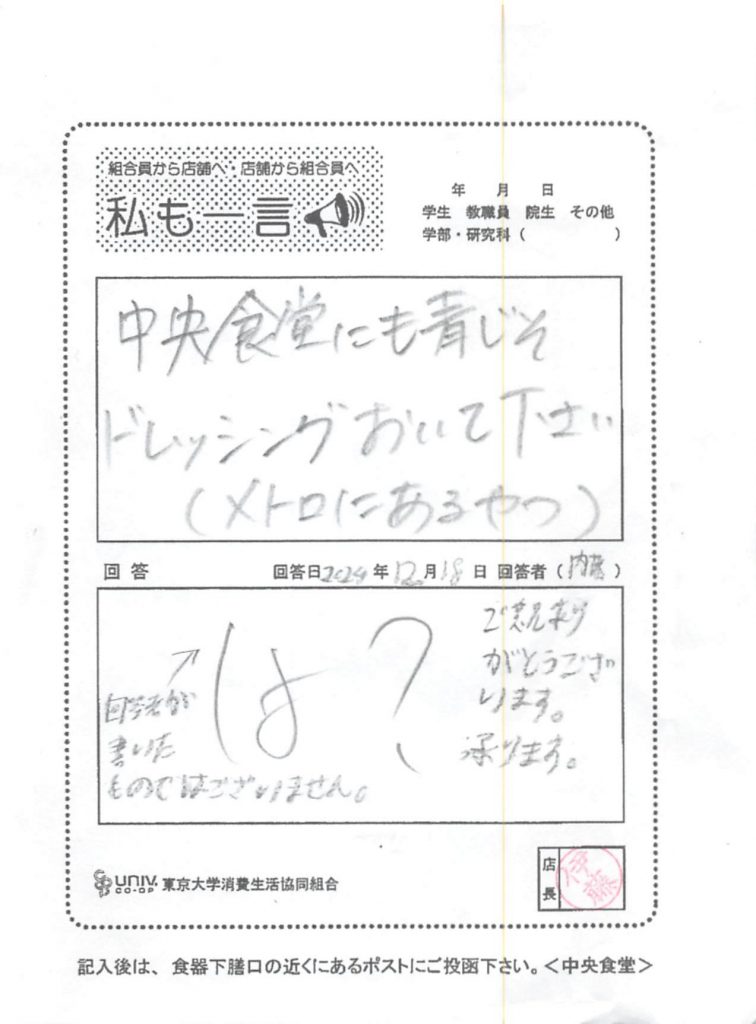 組合員から店舗へ・店舗から組合員へ
私も一言
年 月 日
学生 教職員 院生 その他
学部・研究科（ ）
中央食堂にも青じそ
ドレッシングおいて下さい
（メトロにあるやつ）
回答 回答日2024年12月18日 回答者（内藤）
は？
回答者が
書いた
ものではございません。
ご意見あり
がとうござ
います。
承ります。
UNIV.
CO-OP
東京大学消費生活協同組合
店長
伊藤
記入後は、食器下膳口の近くにあるポストにご投函下さい。＜中央食堂＞